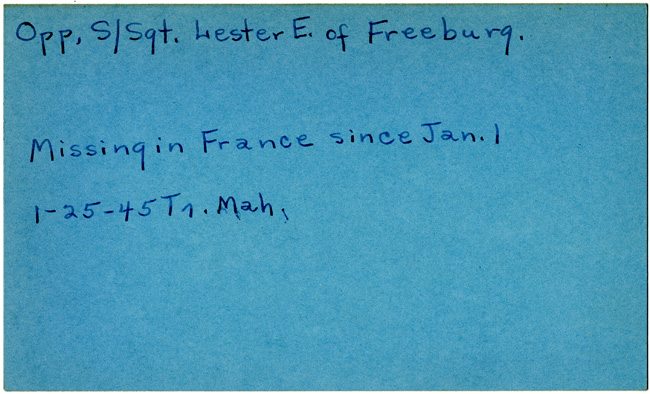 Opp, S/Sgt. Lester E. of Freeburg.
Missing in France since Jan. 1
1-25-45 Tr. Mah.